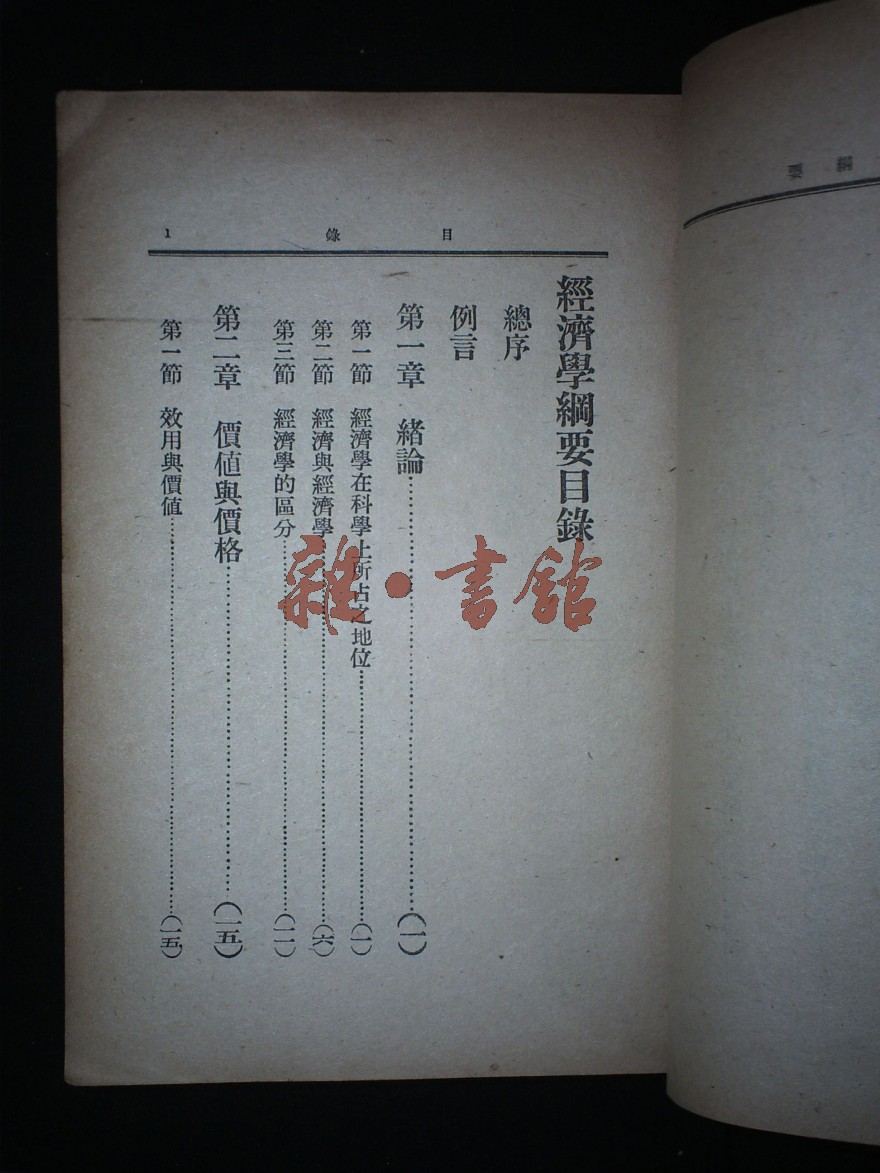 目錄 1
經濟學綱要目錄
總序
例言
第一章 緒論……(一)
第一節 經濟學在科學上所占之地位……(一)
第二節 經濟與經濟學……(六)
第三節 經濟學的區分……(一一)
第二章 價値與價格……(一五)
第一節 效用與價値……(一五)
雜·書館